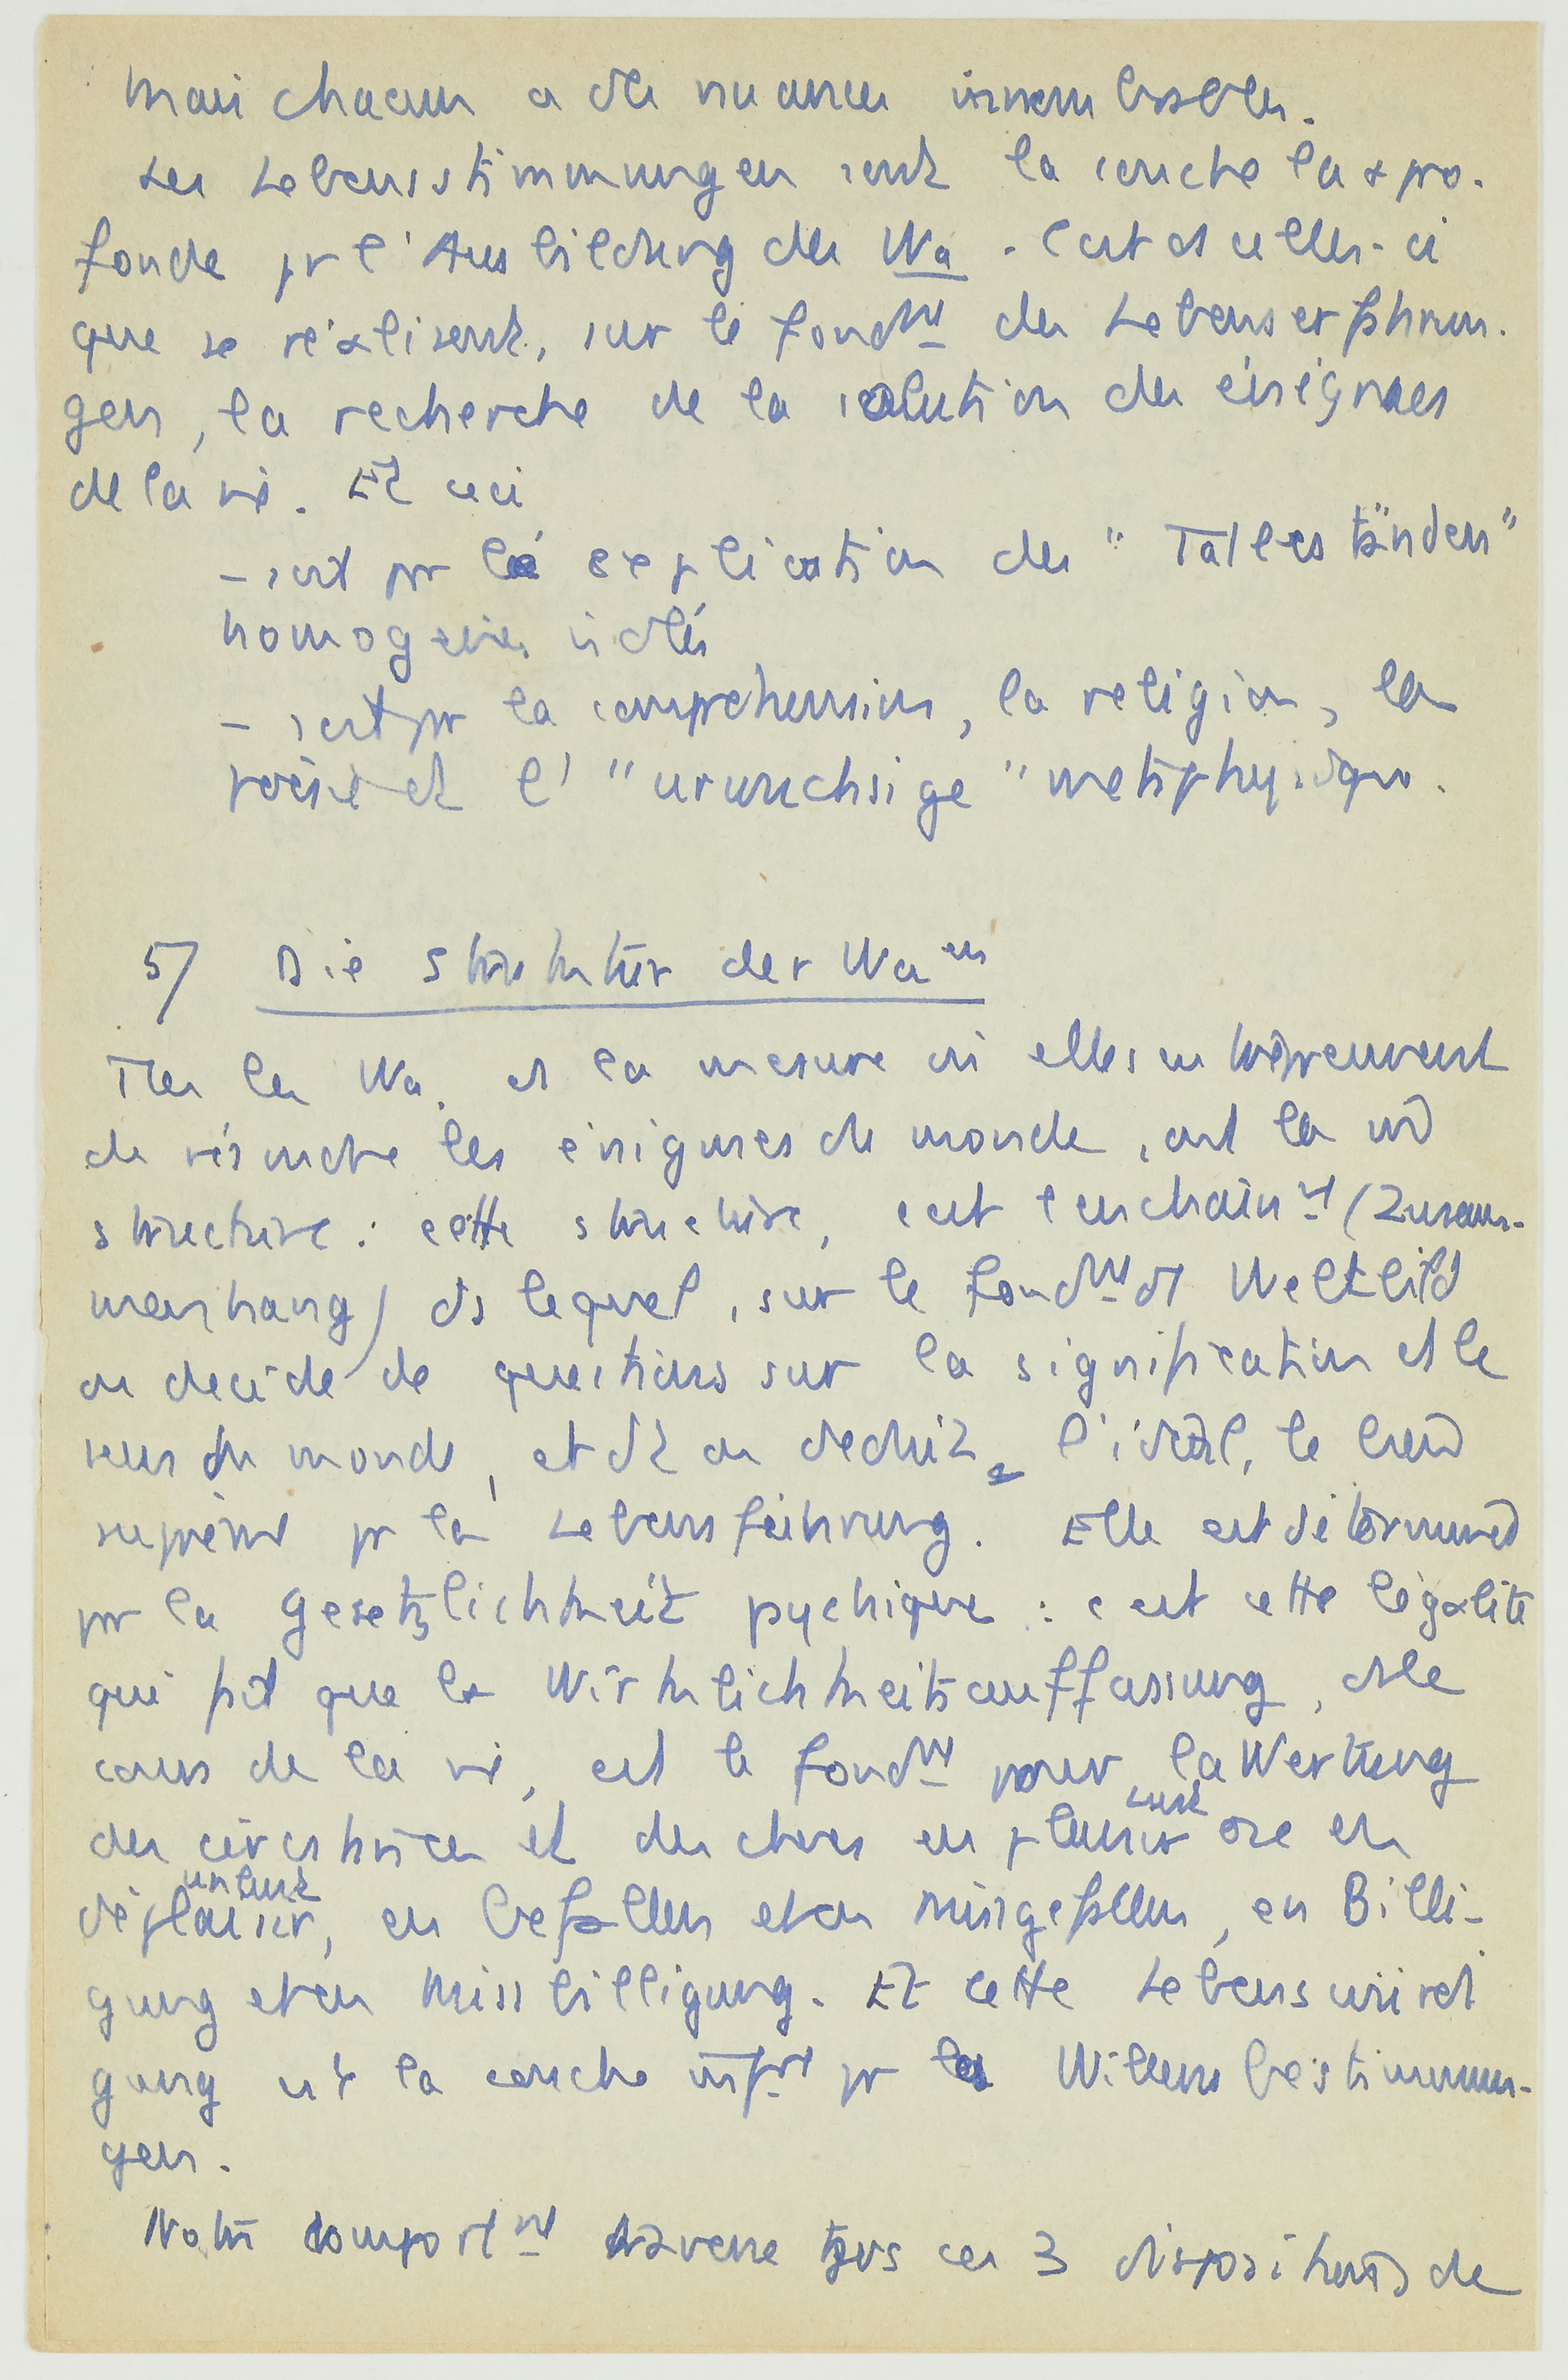 mais chacun a des nuances innombrables.
Les Lebensstimmungen sont la couche la + pro-
fonde pr l'Ausbildung des Wa. C'est ds celles-ci
que se réalisent, sur le fondmt des Lebenserfahrun-
gen, la recherche de la solution des énigmes
de la vie. Et ceci
- soit pr l'explication des "Tatbeständen"
homogènes isolés
- soit pr la compréhension, la religion, la
poésie et l' "urwuchsige" métaphysique.
5/ Die Struktur der Wa en
Ttes les Wa. ds la mesure où elles entreprennent
de résoudre les énigmes du monde, ont la m̂
structure : cette structure, c'est l'enchainmt (Zusam-
menhang) ds lequel, sur le fondmt d'1 Weltbild
on décide de questions sur la signification et le
sens du monde, et dt on déduit l'idéal, le bien
suprême pr la Lebensführung. Elle est déterminée
pr la Gesetzlichkeit psychique : c'est cette légalité
qui fait que la Wirklichkeitsauffassung, ds le
cours de la vie, est le fondmt pour la Wertung
des circonstances et des choses en plaisir Lust ou en
déplaisir unlust, en Gefallen et en Missgefallen, en Billi-
gung et en Missbilligung. Et cette Lebenswürdi
gung est la couche infre pr les Willensbestimmun-
gen.
Notre comportmt traverse tjrs ces 3 dispositions de